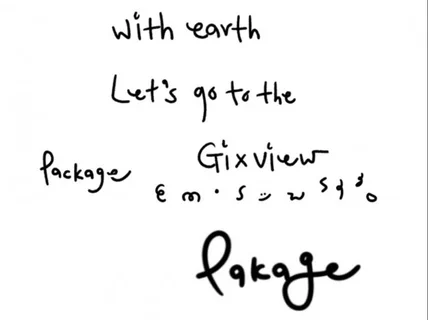 with earth
Let's go to the
Gixview
Package
Pakage